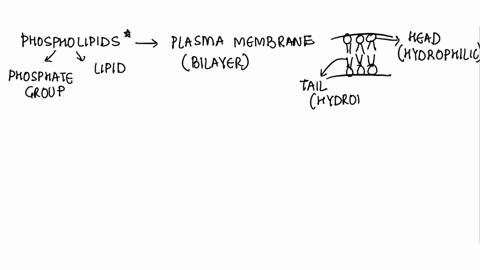 PHOSPHOLIPIDS* → PLASMA MEMBRANE
(BILAYER)
HEAD
(HYDROPHILIC)
PHOSPHATE
GROUP
LIPID
TAIL
(HYDRO